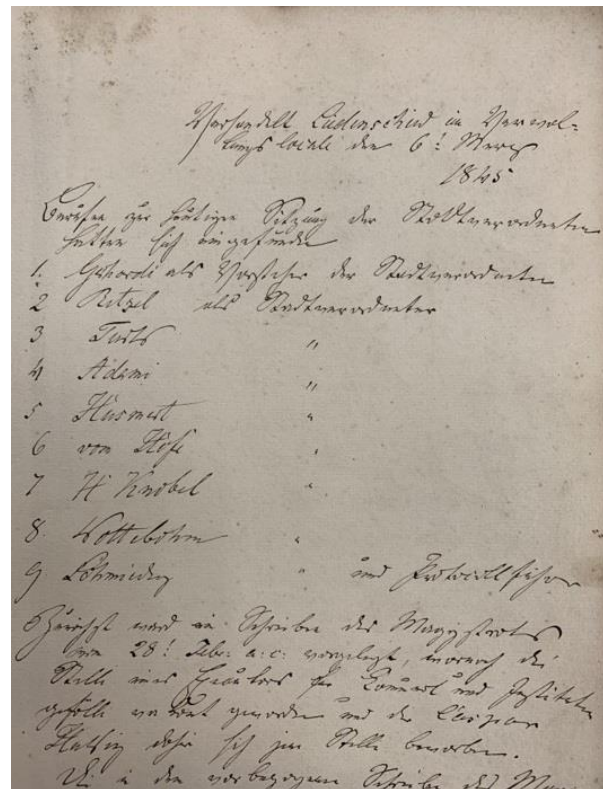 Verhandelt Lüdenscheid im Verwal-
tungs locale den 6t Merz
1845
Berufen zur heutigen Sitzung der Stadtverordneten
hatten sich eingefunden
1. Gerhardi als Vorsteher der Stadtverordneten
2 Ritzel als Stadtverordneter
3 Turks "
4 Adami "
5 Husmert "
6 vom Hofe "
7 H Knobel "
8. Nottebohm "
9 Schmieding " und Protocollführer
Zunächst ward ein Schreiben des Magistrats
vom 28t Febr. a: c: vorgelegt, wonach die
Stelle eines für Communal und Instituten
gefälle vakant geworden und der Caspar
sich zur Stelle beworben.
Die in dem vorbezogenen Schreiben des